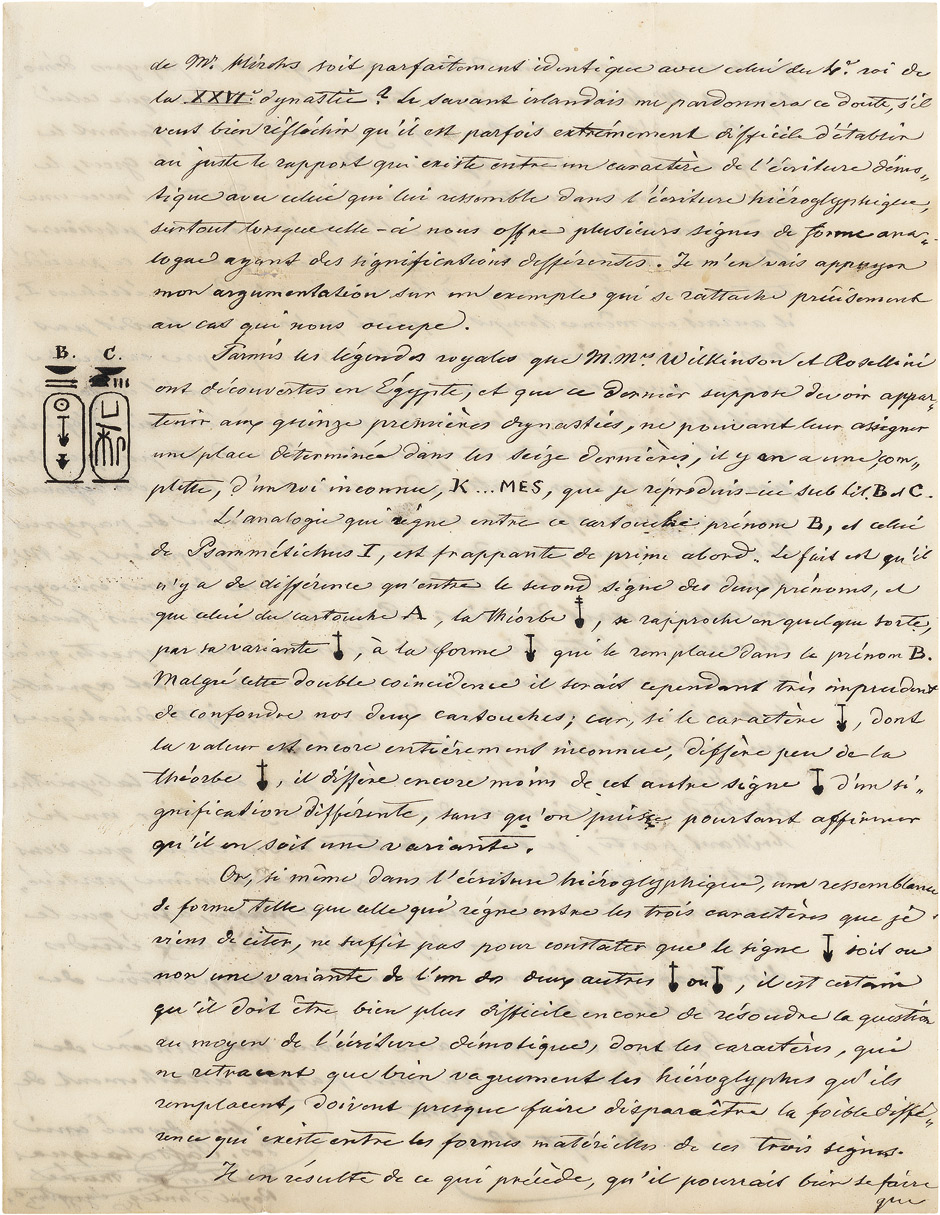 de Mr. Hincks soit parfaitement identique avec celui du 4e. roi de
la XXVIe. dynastie? Le savant irlandais me pardonnera ce doute, s'il
veut bien réfléchir qu'il est parfois extrêmement difficile d'établir
au juste le rapport qui existe entre un caractère de l'écriture démo„
tique avec celui qui lui ressemble dans l'écriture hiéroglyphique,
surtout lorsque celle-ci nous offre plusieurs signes de forme ana„
logue ayant des significations différentes. Je m'en vais appuyer
mon argumentation sur un exemple qui se rattache précisément
au cas qui nous occupe.
B. C.
Parmis les légendes royales que M.Mrs Wilkinson et Rosellini
ont découvertes en Égypte, et que ce dernier suppose devoir appar„
tenir aux quinze premières dynasties, ne pouvant leur assigner
une place déterminée dans les seize dernières, il y en a une com„
plette, d'un roi inconnu, K...MES, que je réproduis-ici sub lit. B et C.
L'analogie qui règne entre ce cartouche prénom B, et celui
de Psammétichus I, est frappante de prime abord. Le fait est qu'il
n'y a de différence qu'entre le second signe des deux prénoms, et
que celui du cartouche A, la théorbe , se rapproche en quelque sorte,
par sa variante , à la forme qui le remplace dans le prénom B.
Malgré cette double coïncidence il serait cependant très imprudent
de confondre nos deux cartouches; car, si le caractère , dont
la valeur est encore entiérement inconnue, diffère peu de la
théorbe , il diffère encore moins de cet autre signe d'un si„
gnification différente, sans qu'on puisse pourtant affirmer
qu'il en soit une variante.
Or, si même dans l'écriture hiéroglyphique, une ressemblance
de forme telle que celle qui règne entre les trois caractères que je
viens de citer, ne suffit pas pour constater que le signe soit ou
non une variante de l'un des deux autres ou , il est certain
qu'il doit être bien plus difficile encore de résoudre la question
au moyen de l'écriture démotique, dont les caractères, qui
ne retracent que bien vaguement les hiéroglyphes qu'ils
remplacent, doivent presque faire disparaître la foible diffé„
rence qui existe entre les formes matérielles de ces trois signes.
Il en résulte de ce qui précède, qu'il pourrait bien se faire
que